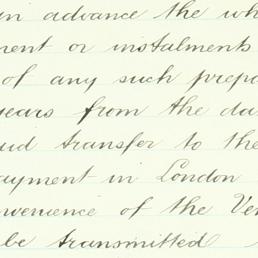 in advance the wh
ment or instalments
of any such prepa
years from the da
aid transfer to the
ayment in London
nvenience of the Ven
be transmitted